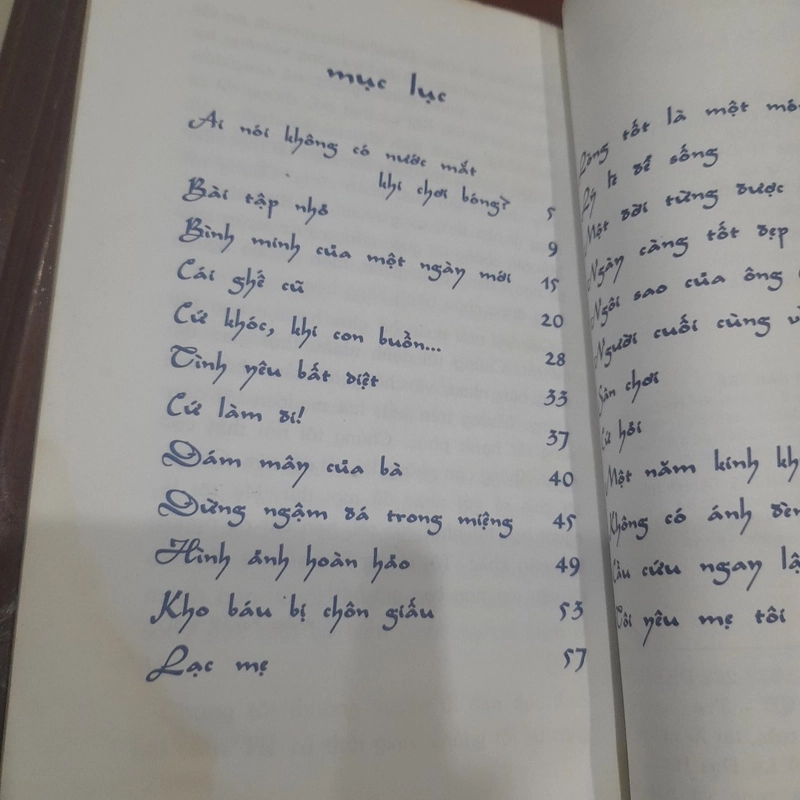 mục lục
Ai nói không có nước mắt
khi chơi bóng? 5
Bài tập nhỏ 9
Bình minh của một ngày mới 15
Cái ghế cũ 20
Cứ khóc, khi con buồn... 28
Tình yêu bất diệt 33
Cứ làm đi! 37
Đám mây của bà 40
Đừng ngậm đá trong miệng 45
Hình ảnh hoàn hảo 49
Kho báu bị chôn giấu 53
Lạc mẹ 57
Lòng tốt là một
Lý lẽ để sống
Một đời từng được
Ngày càng tốt đẹp
Ngôi sao của ông
Người cuối cùng
Sân chơi
Cứ hỏi
Một năm kính
Không có ánh
Cầu cứu ngay
Tôi yêu mẹ tôi